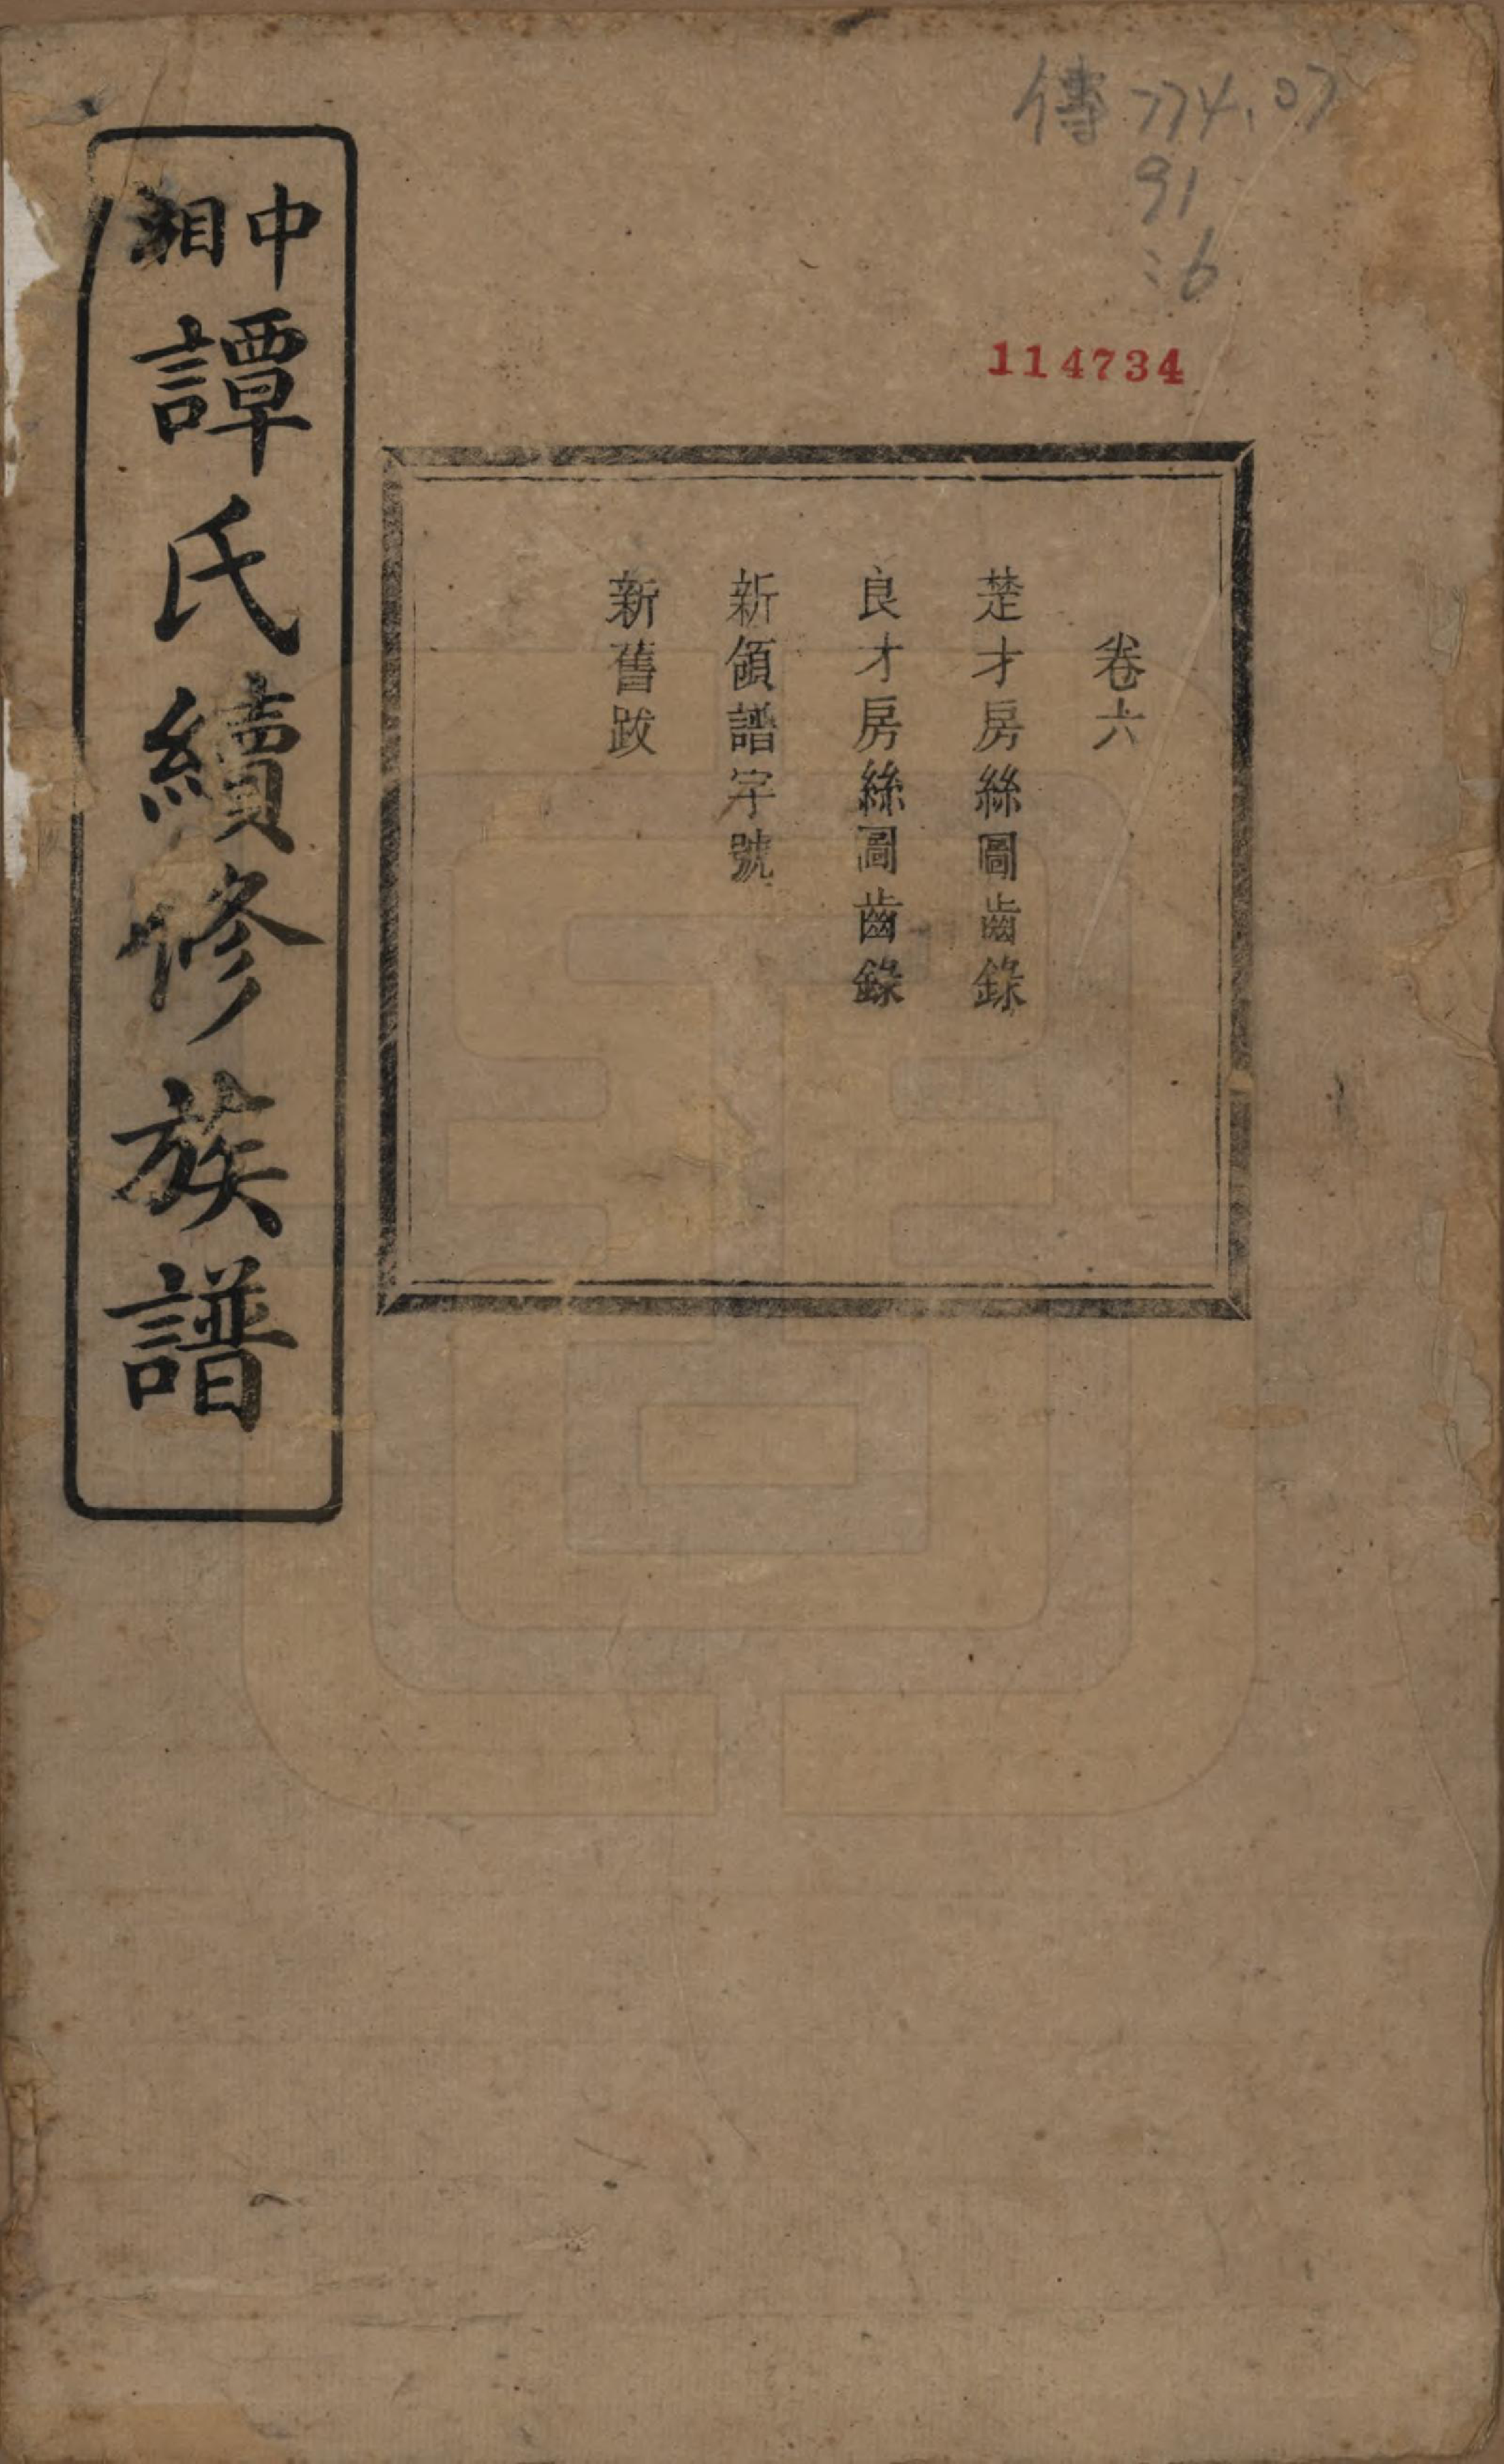 傳 774.07
91
:6
114734
卷六
楚才房絲圖齒錄
良才房絲圖齒錄
新領譜字號
新舊跋
中湘
譚氏續修族譜